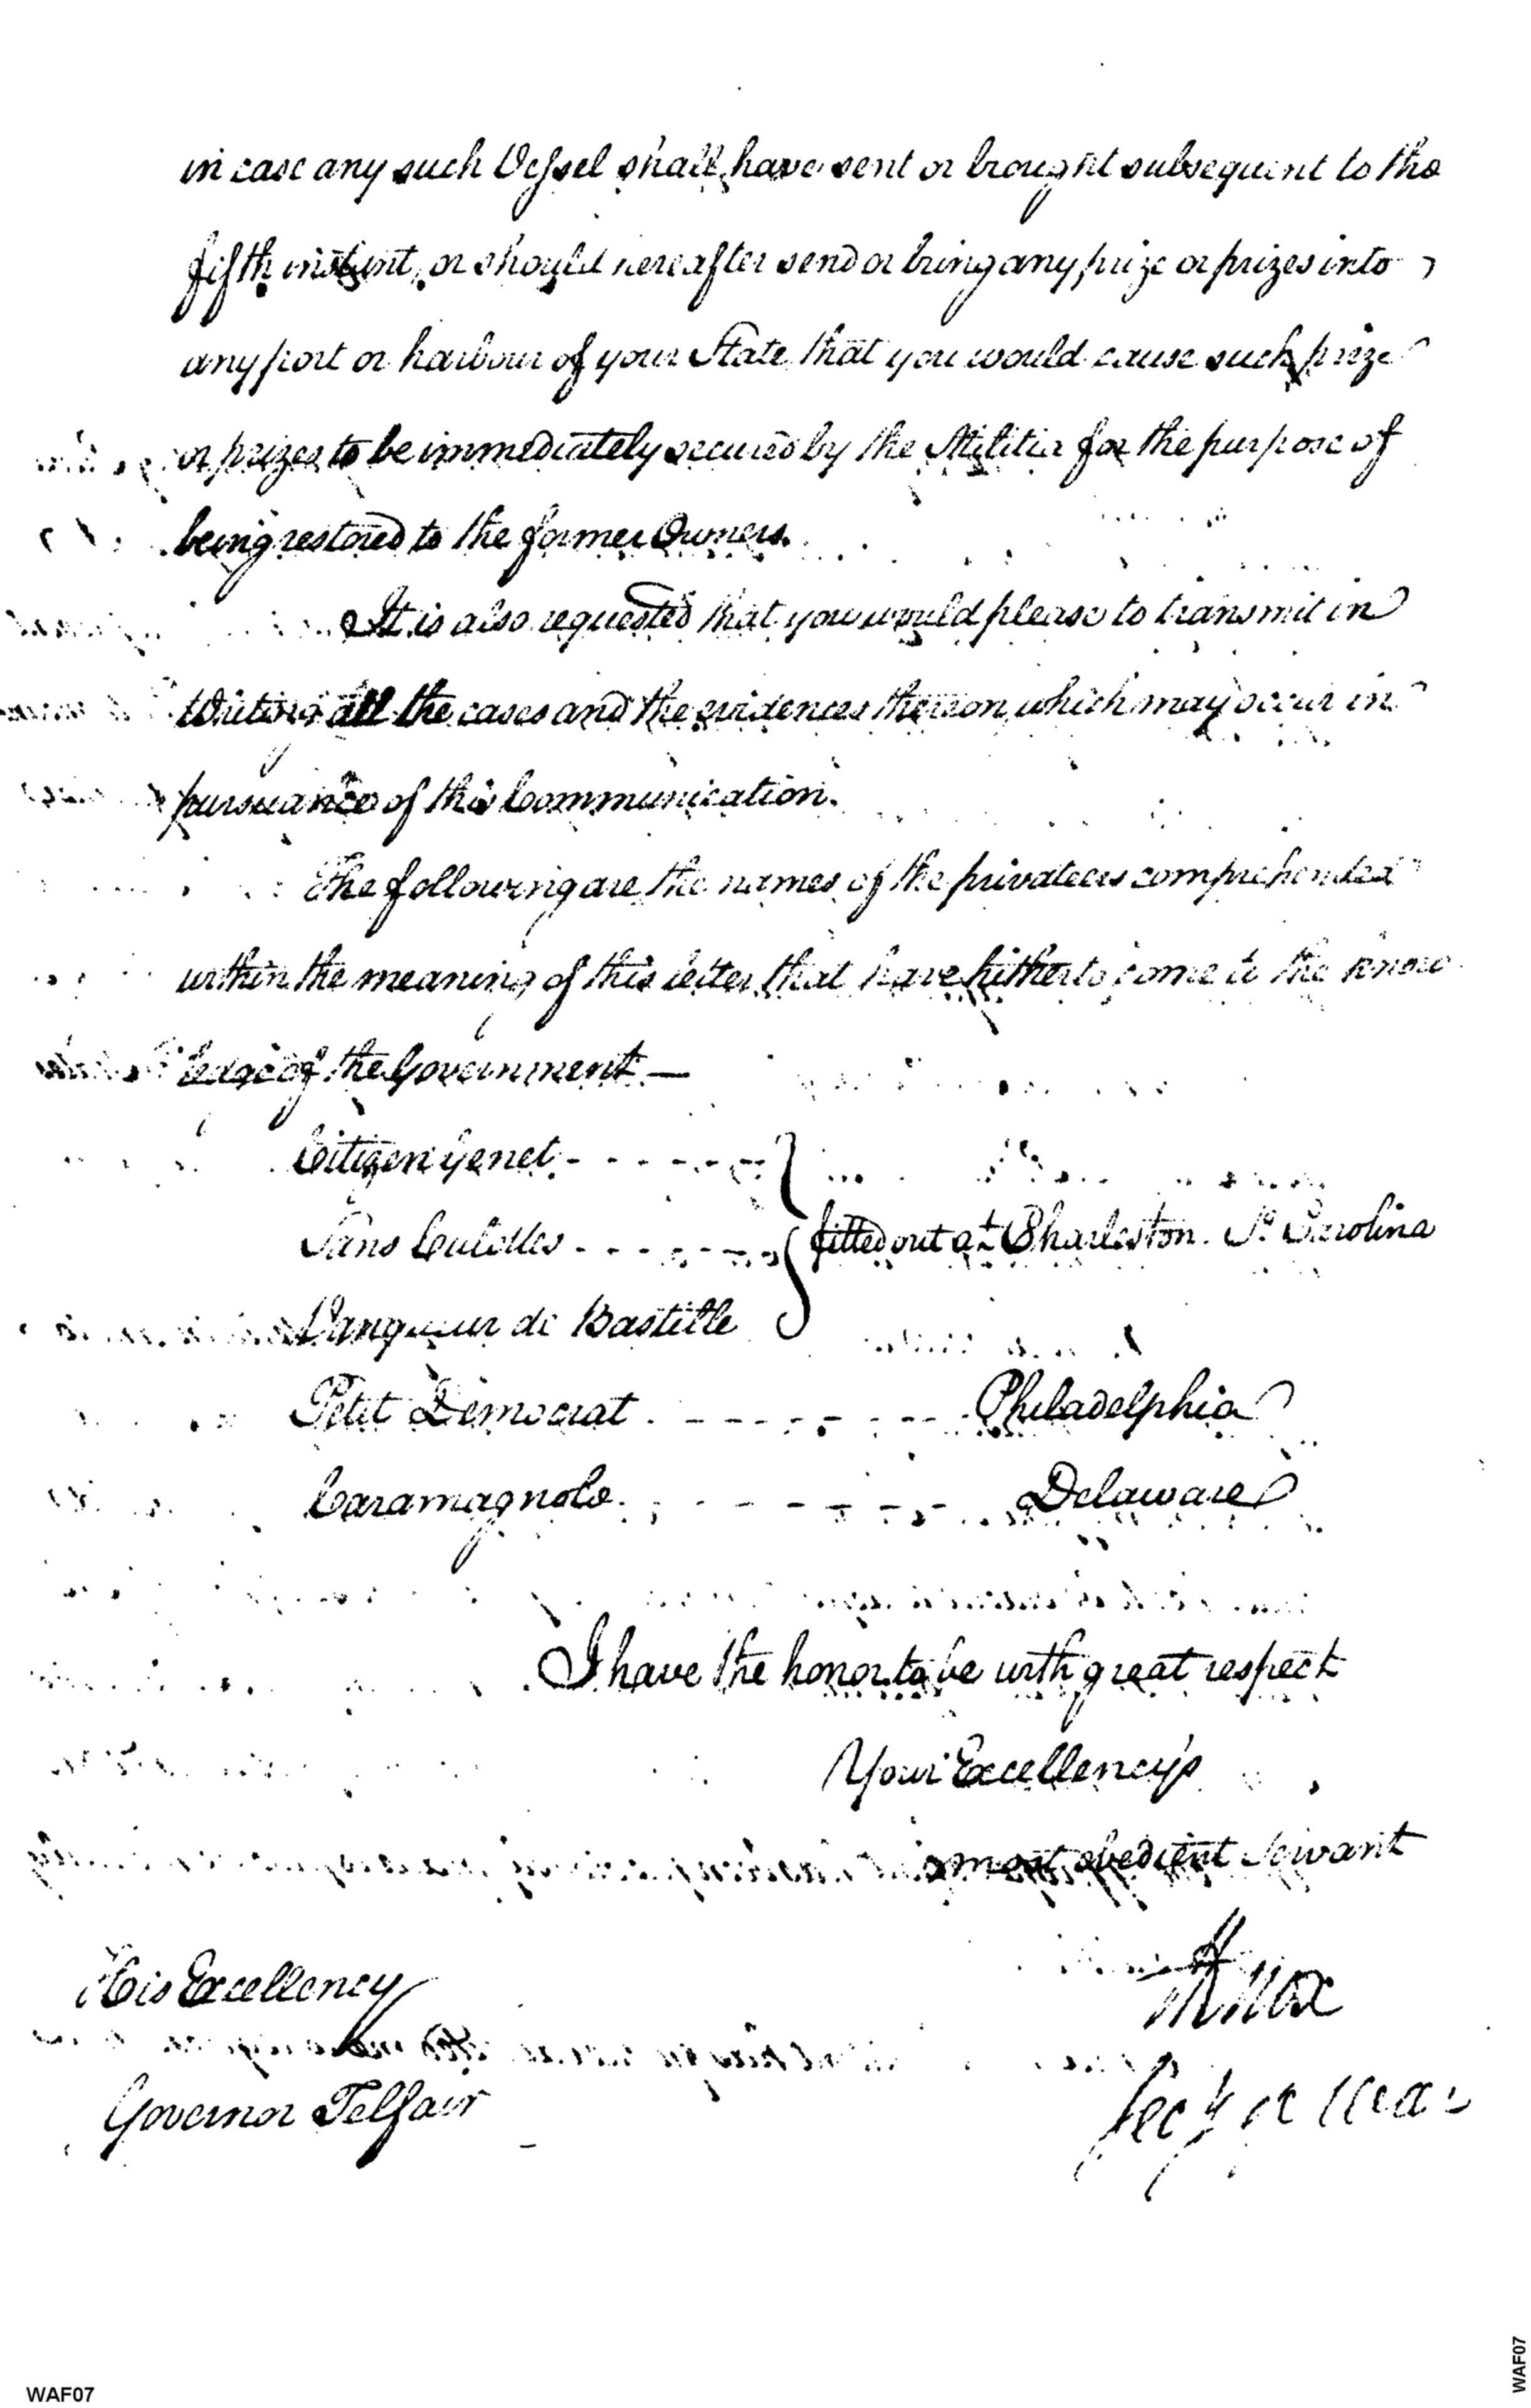 in case any such Vessel shall have sent or brought subsequent to the
fifth instant, or should hereafter send or bring any prize or prizes into
any port or harbour of your State that you would cause such prize
or prizes to be immediately secured by the Militia for the purpose of
being restored to the former Owners.
It is also requested that you would please to transmit in
Writing all the cases and the evidences thereon, which may occur in
pursuance of this Communication.
The following are the names of the privateers comprehended
within the meaning of this letter that have hitherto come to the know
ledge of the Government —
Citizen Genet - - - - - - -
Sans Culottes - - - - - - - fitted out at Charleston. So. Carolina
Vanqueur de Bastille
Petit Democrat - - - - - - - Philadelphia
Caramagnole - - - - - - - Delaware
I have the honor to be with great respect
Your Excellency's
most obedient Servant
HKnox
Secy of War
His Excellency
Governor Telfair
WAF07
WAF07